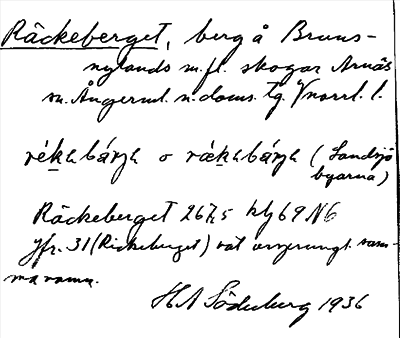 Räckeberget, berg å Bruns-
nylands m.fl. skogar Arnäs
sn. Ångerml. n. doms. tg. V norrl. l.
rékabárja o rä́kabárja (Landsjö
byarna)
Räckeberget 267,5 blj 69 N6
Jfr. 31 (Rickeberget) rät ursprungl. sam-
ma namn.
HN Söderberg 1936